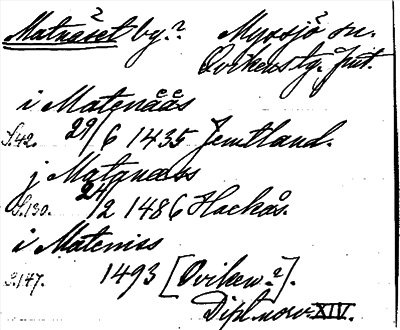 Matnäset by. Myssjö sn.
Ovikens tg. Jmt.
i Matenääs
S.42. 29/6 1435 Jemtland.
j Matanæss
S.130. 24/2 1486 Hackås.
i Mateniss
S.147. 1493 [Oviken?].
Dipl. norv. XIV.